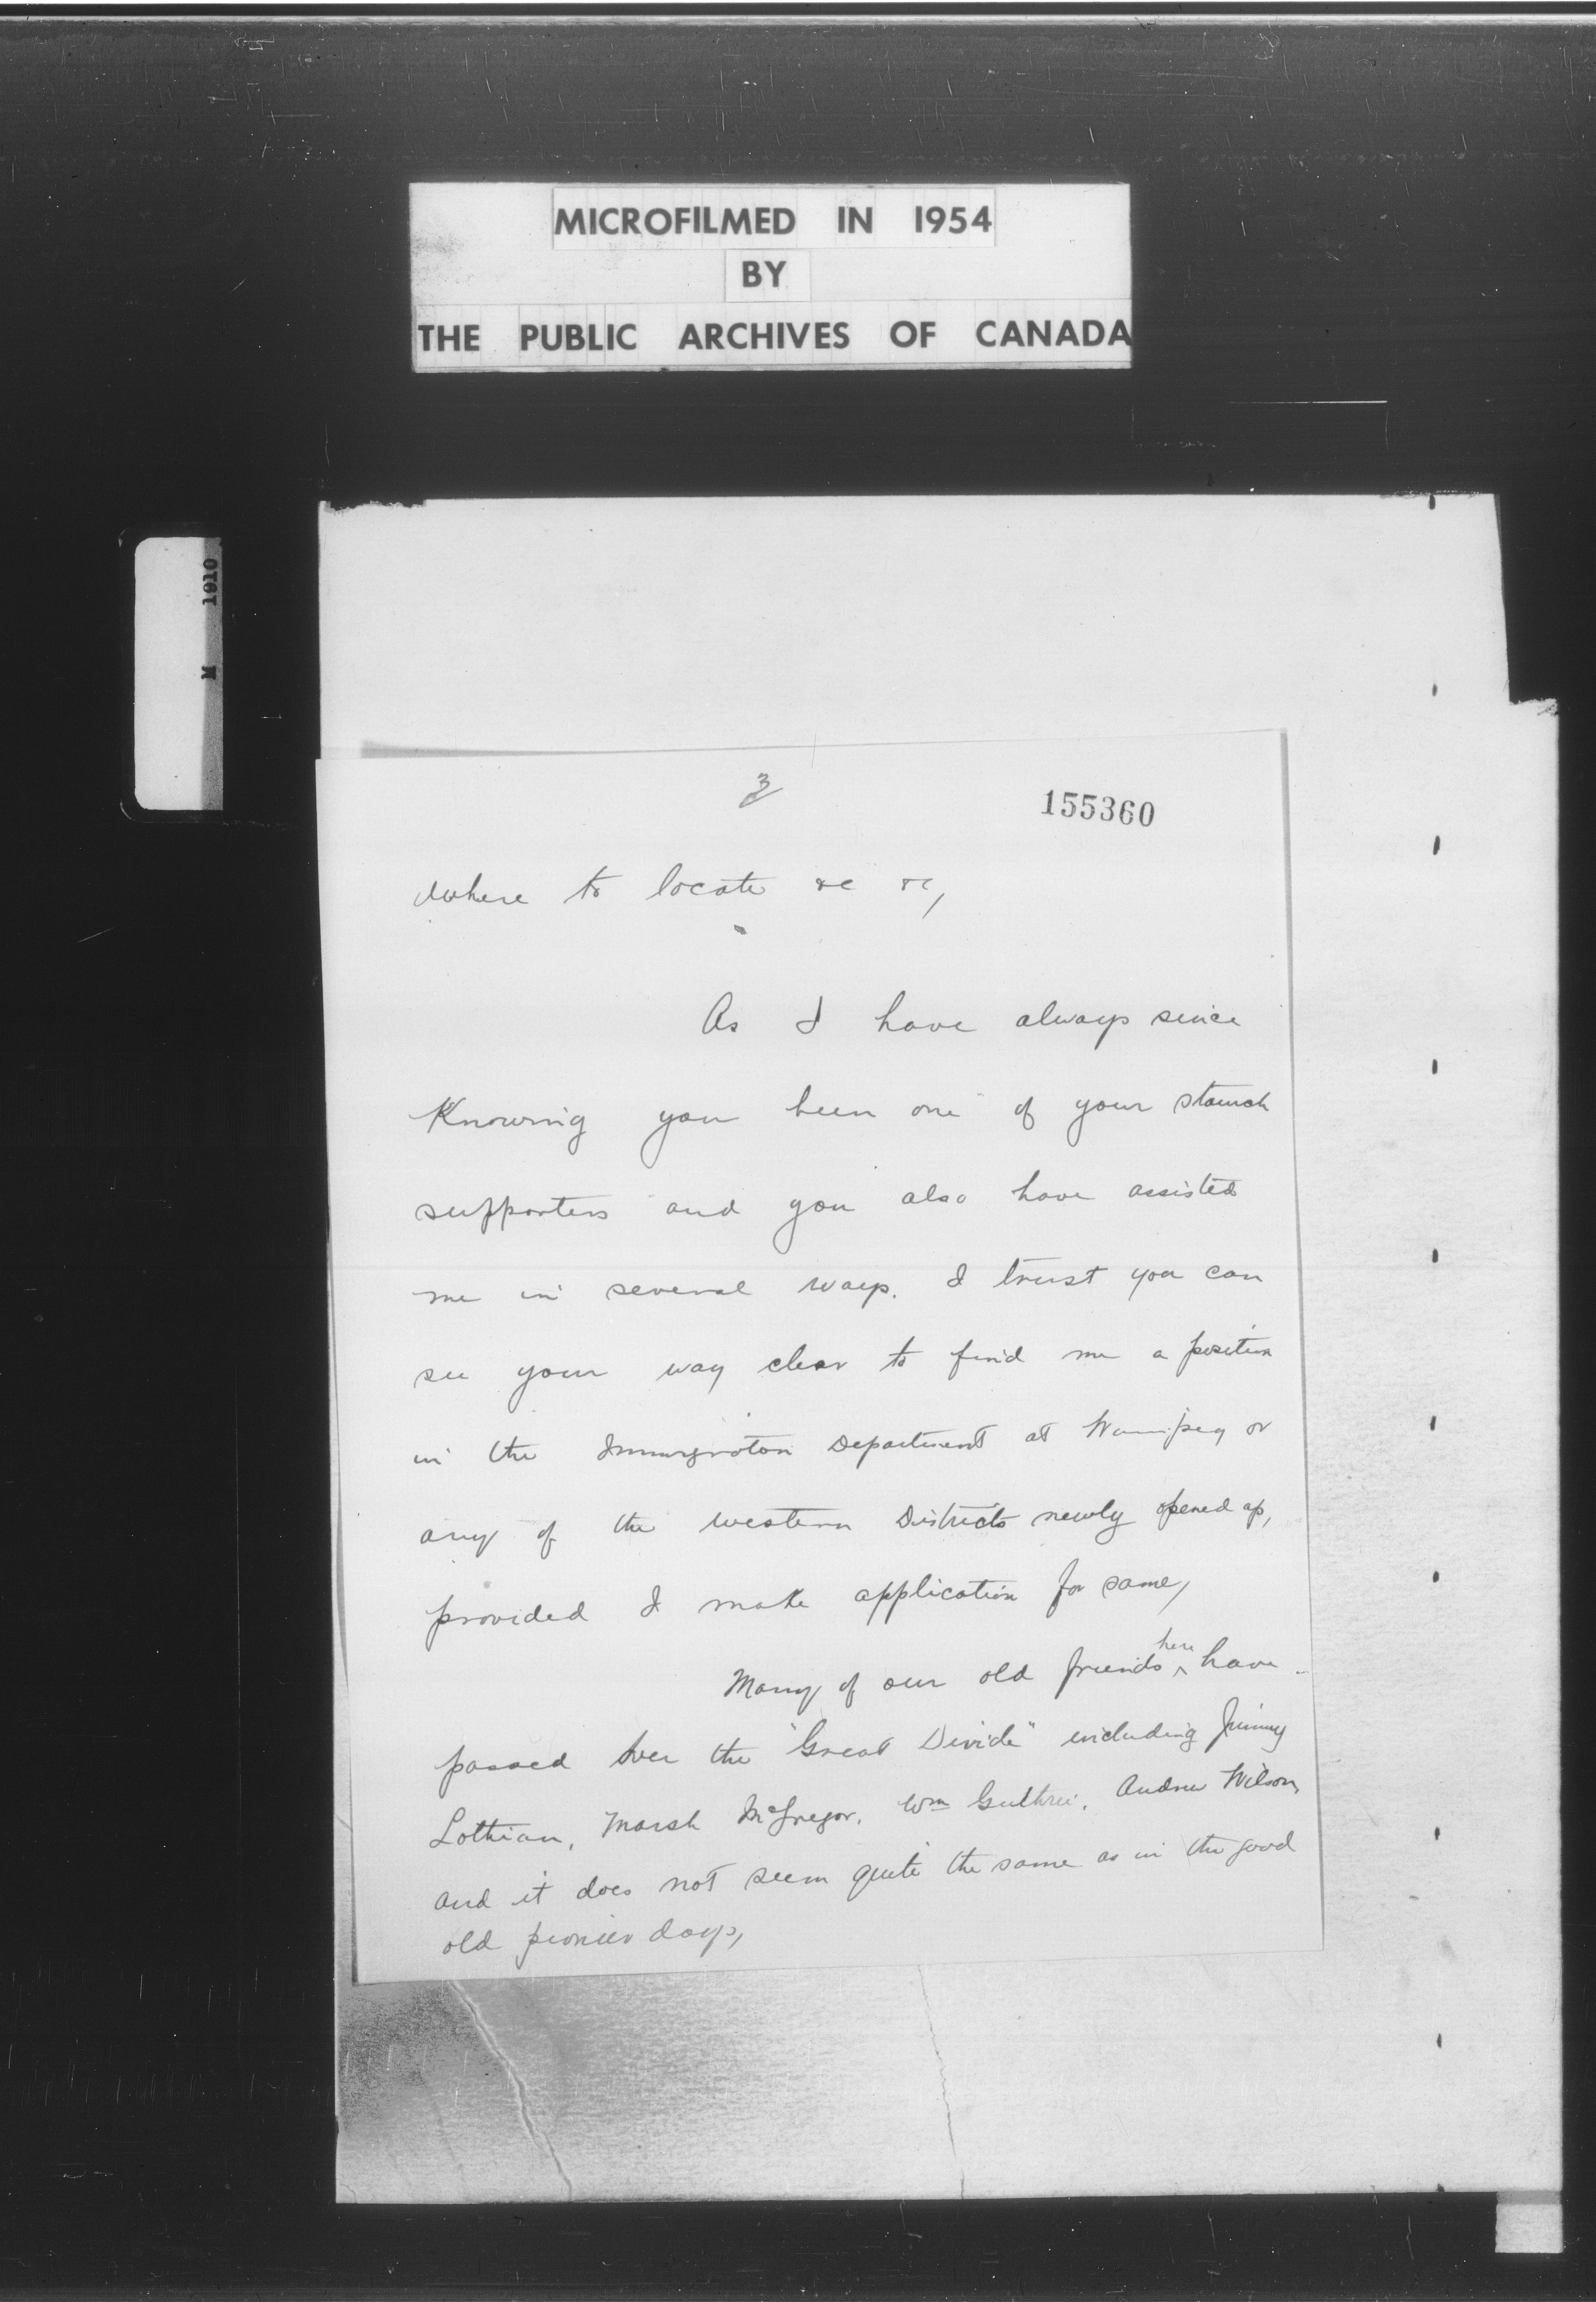 MICROFILMED IN 1954
BY
THE PUBLIC ARCHIVES OF CANADA
M 1910
3
155360
where to locate &c &c,
As I have always since
Knowing you been one of your staunch
supporters and you also have assisted
me in several ways. I trust you can
see your way clear to find me a position
in the Immigration Department at Winnipeg or
any of the western Districts newly opened up,
provided I make application for same,
Many of our old friends here have
passed over the "Great Divide" including Jimmy
Lothian, Marsh McGregor, Wm Guthrie, Andrew Wilson,
and it does not seem quite the same as in the good
old pionier days,